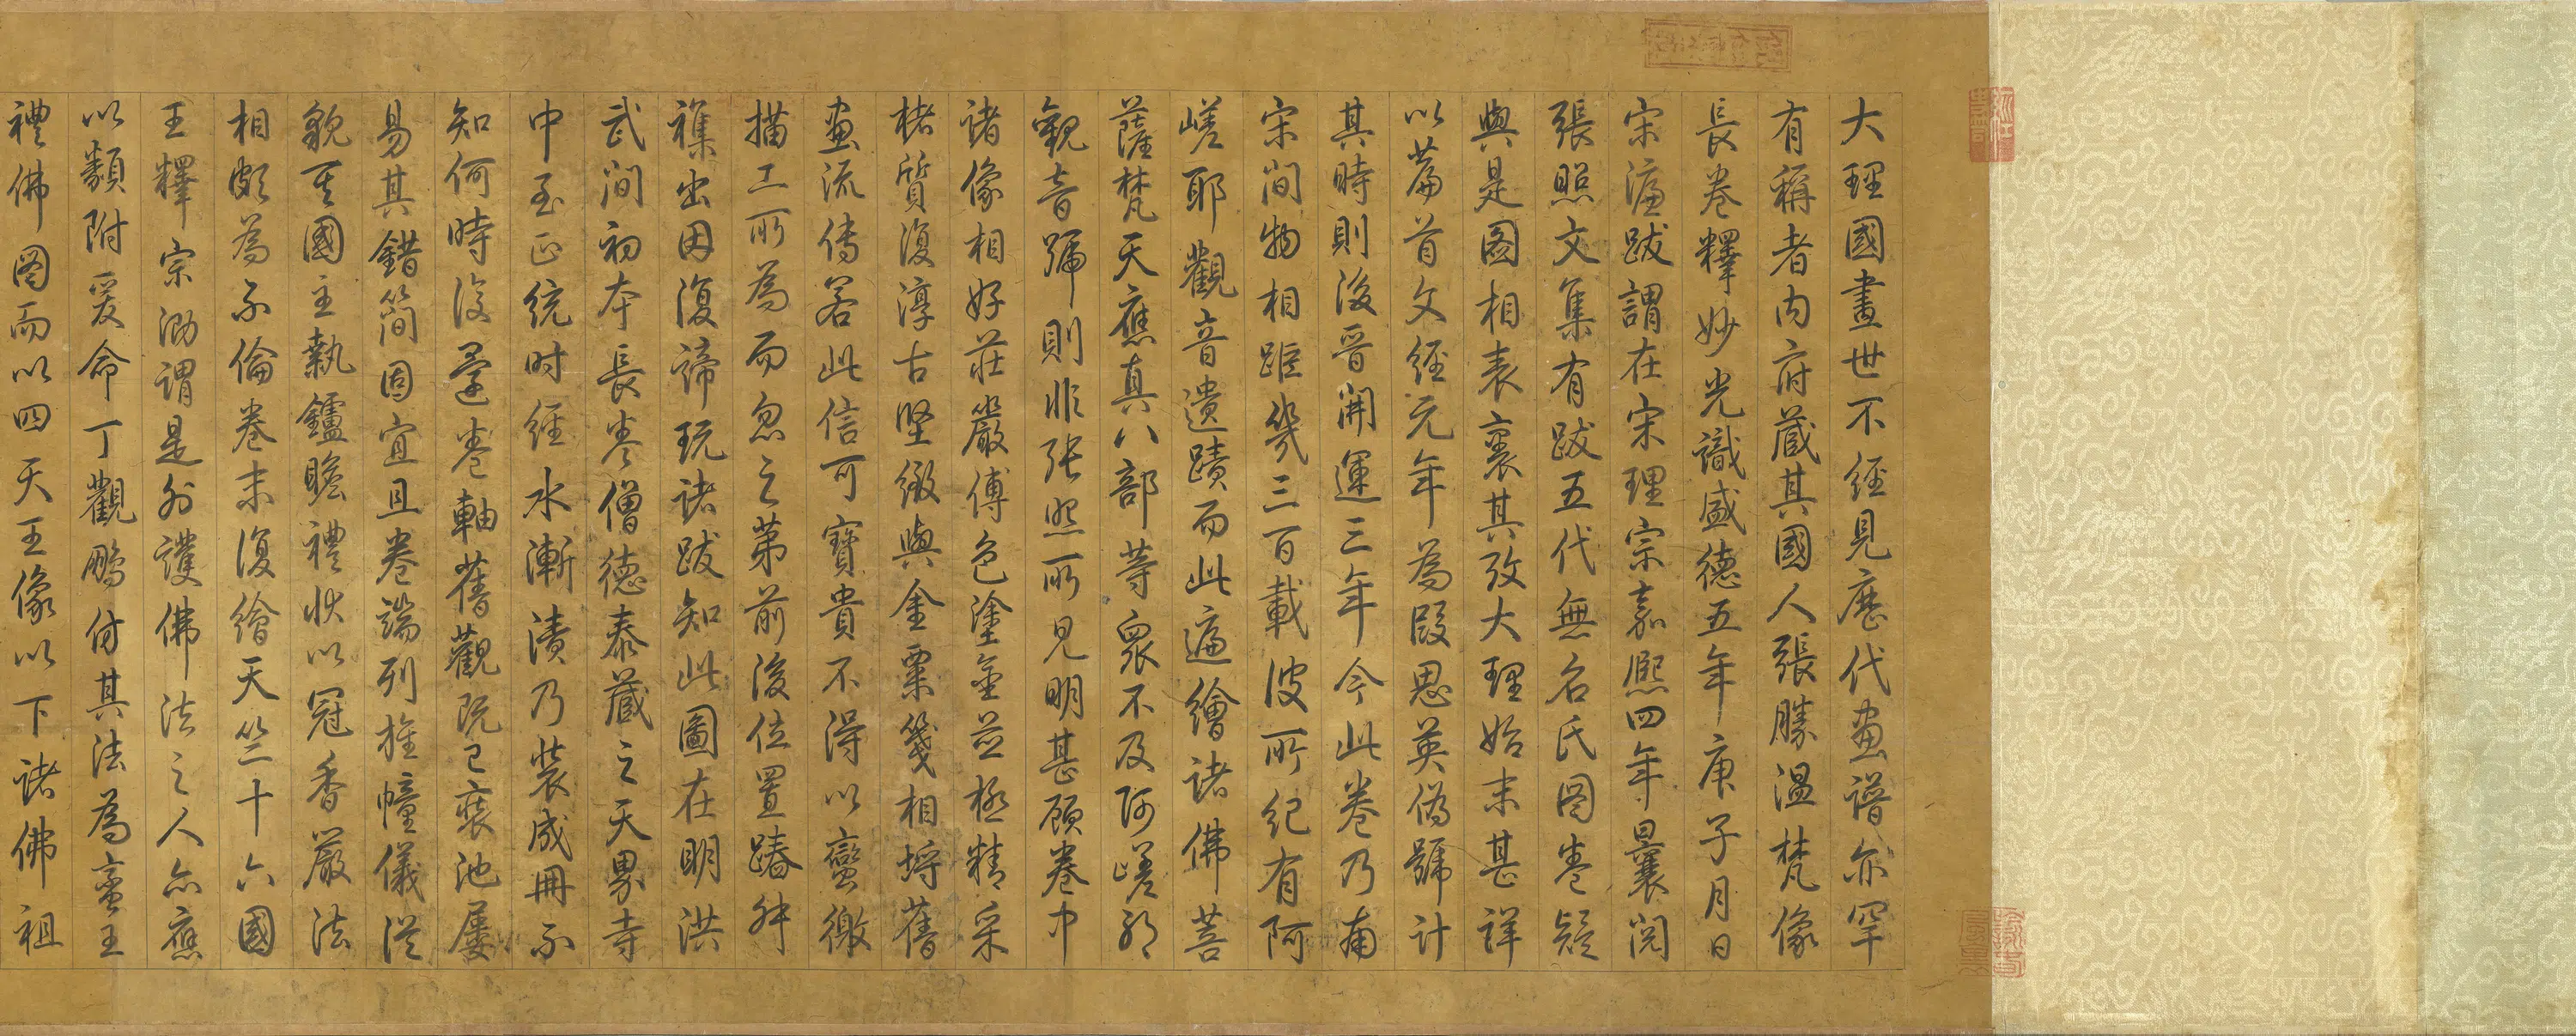 大理國畫世不經見歷代畫譜亦罕
有稱者內府藏其國人張勝溫梵像
長卷釋妙光識盛德五年庚子月日
宋濂跋謂在宋理宗嘉熙四年曩閱
張照文集有跋五代無名氏圖卷疑
與是圖相表裏其攷大理始末甚詳
以篇首文經元年為段思英偽號計
其時則後晉開運三年今此卷乃南
宋間物相距幾三百載彼所紀有阿
嵯耶觀音遺蹟而此遍繪諸佛菩
薩梵天應真八部等眾不及阿嵯耶
觀音號則非張照所見明甚顧卷中
諸像相好莊嚴傅色塗金並極精采
楮質復淳古堅緻與金粟箋相埒舊
畫流傳若此信可寶貴不得以蠻徼
描工所為而忽之第前後位置踳舛
襍出因復諦玩諸跋知此圖在明洪
武間初本長卷僧德泰藏之天界寺
中至正統时經水漸漬乃裝成冊不
知何時復還卷軸舊觀既已裝池屢
易其錯簡固宜且卷端列旌幢儀從
貌其國主執鑪瞻禮狀以冠香嚴法
相頗為不倫卷末復繪天竺十六國
王釋宗泐謂是外護佛法之人亦應
以類附爰命丁觀鵬仿其法為蠻王
禮佛圖而以四天王像以下諸佛祖